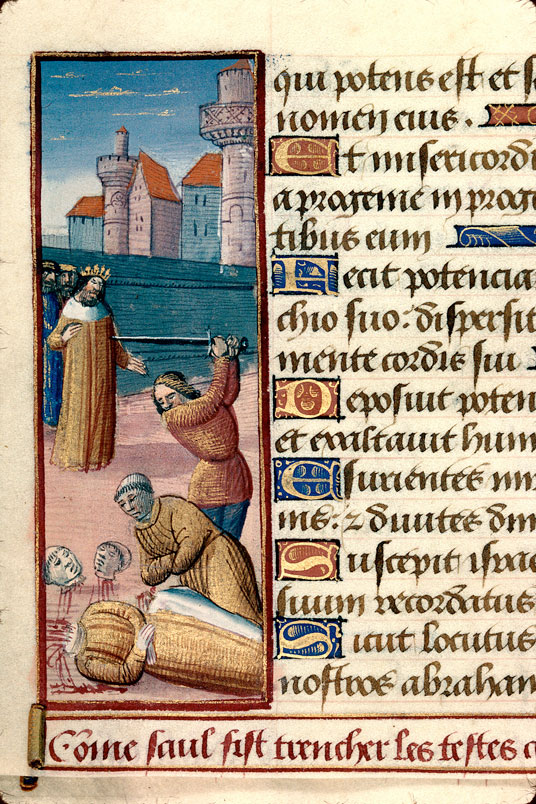 qui potens est et s
nomen eius.
Et misericordi
a progenie in proge
tibus eum
Fecit potencia
chio suo: dispersit
mente cordis sui
Deposuit poten
et exaltauit hum
Esurientes im
nis: z diuites dim
Suscepit israe
suum recordatus
Sicut locutus
nostros abraham
Cōme saul fist trencher les testes